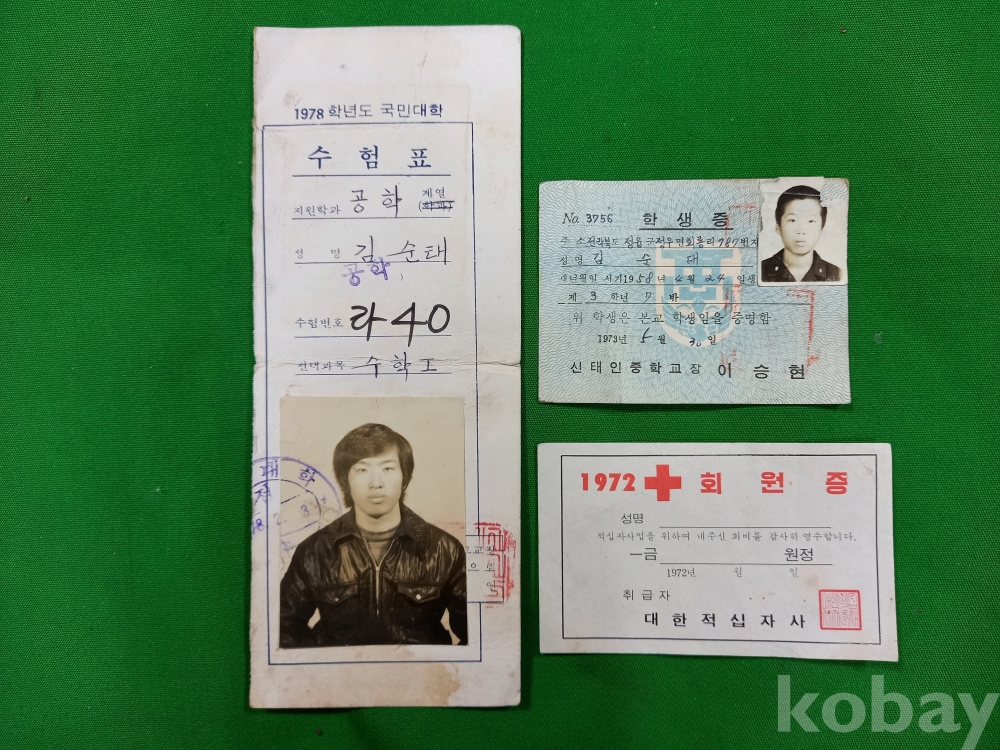 1978 학년도 국민대학
수 험 표
지원학과 공학 계열 (학과)
성 명 김순태
공학
수험번호 라 40
선택과목 수학 I
대 학
No. 3756 학 생 증
주 소 전라북도 정읍군 정우면 회룡리 787번지
성명 김 숭 대
생년월일 서기 1958년 4월 24일생
제 3 학년 7 반
위 학생은 본교 학생임을 증명함
1973년 5월 30일
신태인중학교장 이 승 현
1972 회 원 증
성명
적십자사업을 위하여 내주신 회비를 감사히 영수합니다.
一금 원정
1972년 월 일
취 급 자
대 한 적 십 자 사
kobay